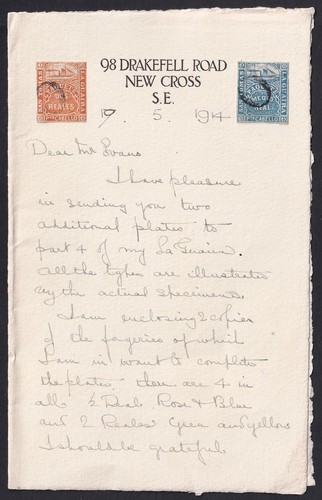 98 DRAKEFELL ROAD
NEW CROSS
S.E.
SAN TOMAS
LA GUAIRA
PAQUETE
REALES
PTO CABELLO
SAN TOMAS
LA GUAIRA
PAQUETE
MEDIO
REAL
PTO CABELLO
5. 1914
Dear Mr Evans
I have pleasure
in sending you two
additional plates to
part 4 of my La Guaira.
All the types are illustrated
by the actual specimens.
I am enclosing 2 copies
of the forgeries of which
I am in want to complete
the plates. there are 4 in
all ½ Real Rose & Blue
and 2 Reales Green and yellow
I should be grateful